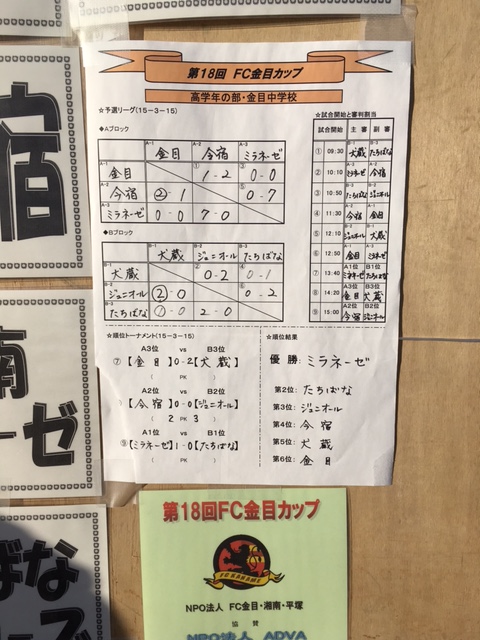 第18回 FC金目カップ
高学年の部・金目中学校
☆予選リーグ(15-3-15)
◆Aブロック
A-1 金目 A-2 今宿 A-3 ミラネーゼ
A-1 金目 ① 1-2 ③ 0-0
A-2 今宿 ②-1 ⑤ 0-7
A-3 ミラネーゼ 0-0 7-0
◆Bブロック
B-1 犬蔵 B-2 ジュニオール B-3 たちばな
B-1 犬蔵 ② 0-2 ④ 0-1
B-2 ジュニオール ②-0 ⑥ 0-2
B-3 たちばな ①-0 2-0
☆試合開始と審判割当
試合開始 主審 副審
① 09:30 B-1 犬蔵 B-3 たちばな
② 10:10 A-3 ミラネーゼ A-2 今宿
③ 10:50 B-3 たちばな B-2 ジュニオール
④ 11:30 A-2 今宿 A-1 金目
⑤ 12:10 B-2 ジュニオール B-1 犬蔵
⑥ 12:50 A-1 金目 A-3 ミラネーゼ
⑦ 13:40 A1位 ミラネーゼ B1位 たちばな
⑧ 14:20 A3位 金目 B3位 犬蔵
⑨ 15:00 A2位 今宿 B2位 ジュニオール
☆順位トーナメント(15-3-15)
A3位 vs B3位
⑦【金目】0-2【犬蔵】
( PK )
A2位 vs B2位
【今宿】0-0【ジュニオール】
( 2 PK 3 )
A1位 vs B1位
⑨【ミラネーゼ】1-0【たちばな】
( PK )
☆順位結果
優勝:ミラネーゼ
第2位:たちばな
第3位:ジュニオール
第4位:今宿
第5位:犬蔵
第6位:金目
宿
南
ーゼ
ばな
ーズ
第18回FC金目カップ
FC KANAME
NPO法人 FC金目・湘南・平塚
協賛
NPO法人 ADVA